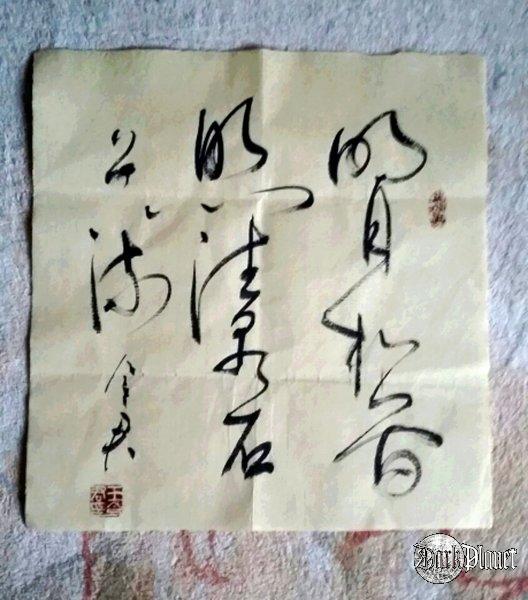 明月松间
照清泉石
上流
DarkPlanet